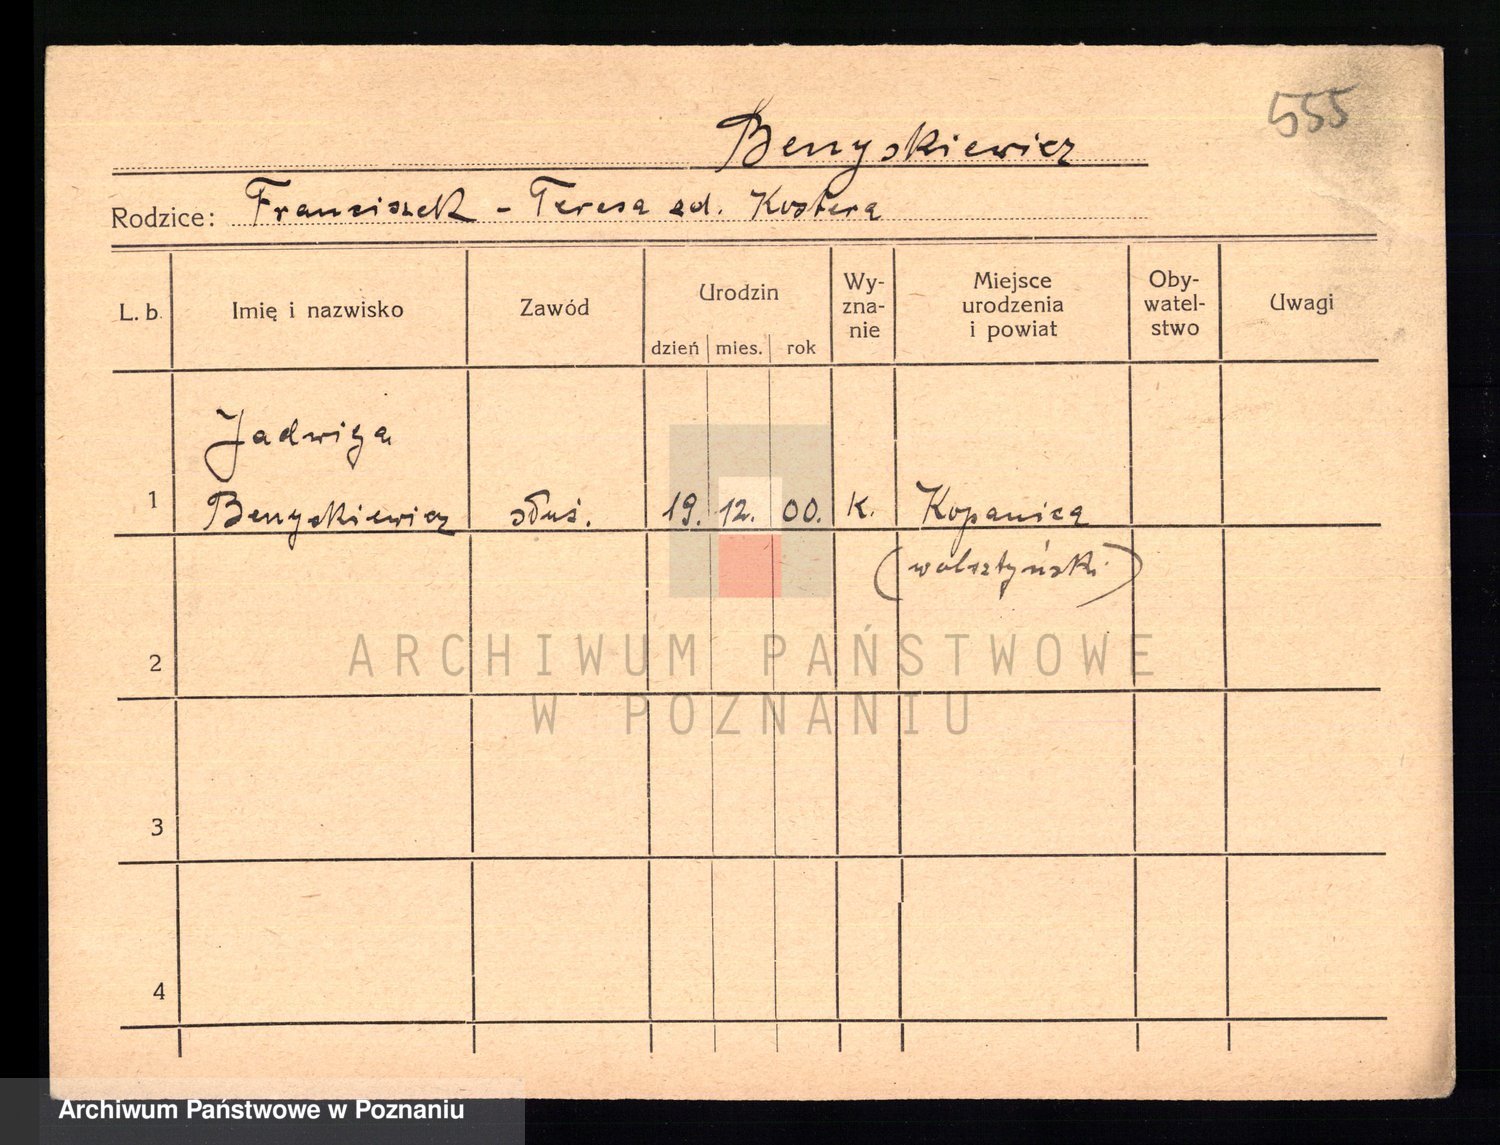 555
Benyskiewicz
Rodzice: Franciszek - Teresa zd. Kostera
L. b. Imię i nazwisko Zawód Urodzin dzień mies. rok Wy-zna-nie Miejsce urodzenia i powiat Oby-watel-stwo Uwagi
Jadwiga
1 Benyskiewicz służ. 19. 12. 00. k. Kopanica
(wolsztyński)
2
ARCHIWUM PAŃSTWOWE
W POZNANIU
3
4
Archiwum Państwowe w Poznaniu